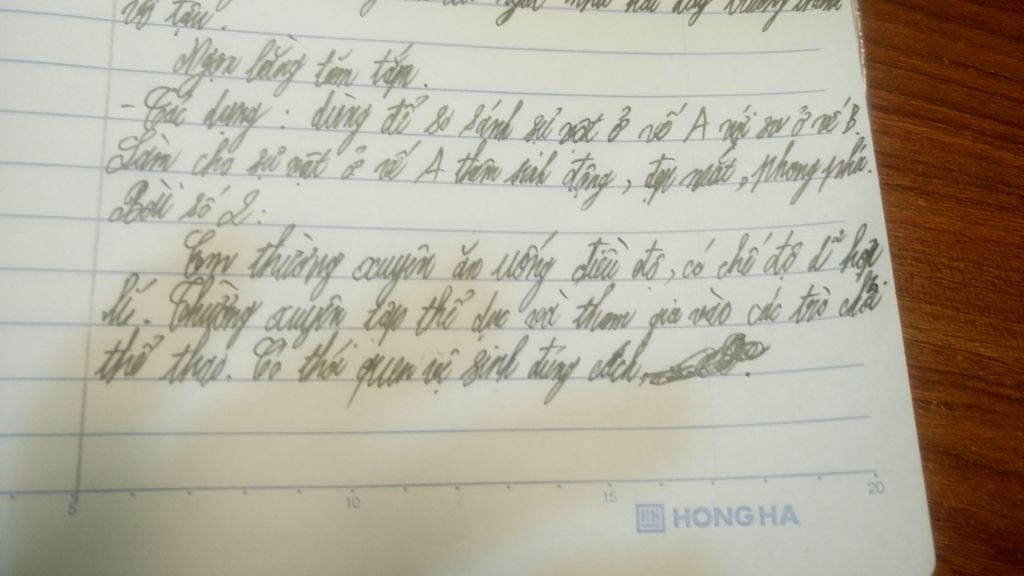 vô tậu.
Ngựn lằng tăm tắp.
- Tác dụng: dùng để so sánh sự vật ở vế A với sv ở vế B.
Làm cho sự vật ở vế A thêm sinh động, đẹp mắt, phong phú.
Bài số 2:
Em thường xuyên ăn uống điều độ, có chế độ hợp
lí. Thường xuyên tập thể dục và tham gia vào các trò chơi
thể thao. Có thói quen vệ sinh đúng cách,
5 10 15 20
HONG HA